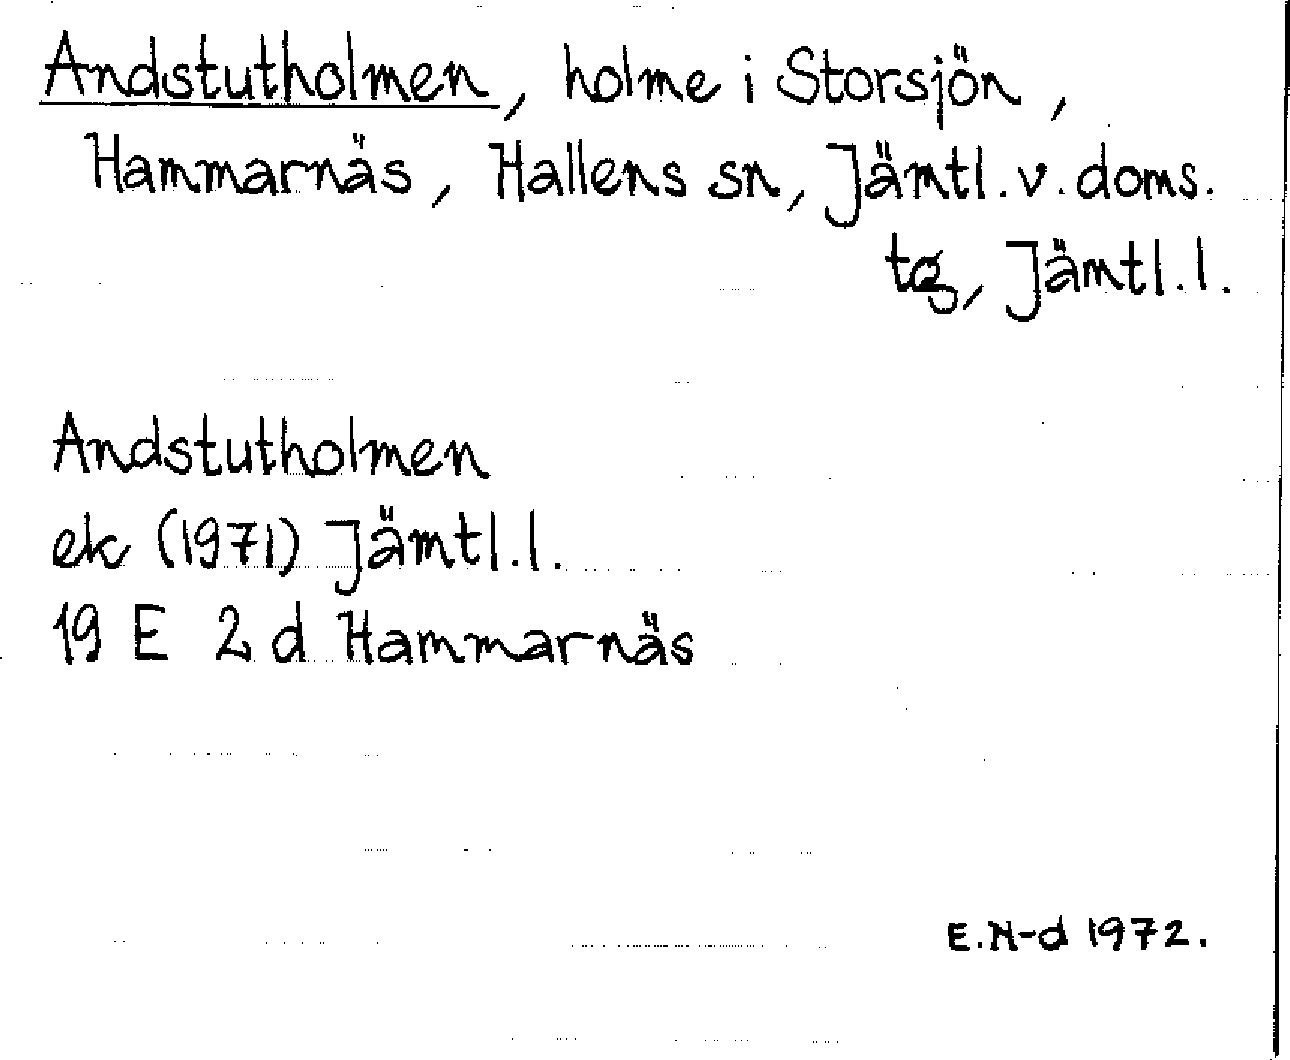 Andstutholmen, holme i Storsjön,
Hammarnäs, Hallens sn, Jämtl. v. doms.
tg, Jämtl. l.
Andstutholmen
ek (1971) Jämtl. l.
19 E 2 d Hammarnäs
E. N-d 1972.